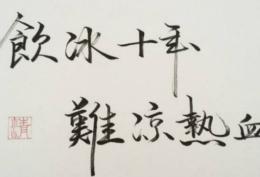 飲冰十年
難涼熱血
清